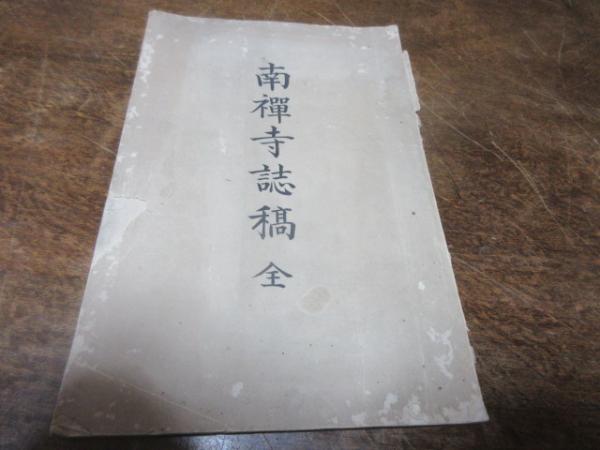 南禪寺誌稿 全